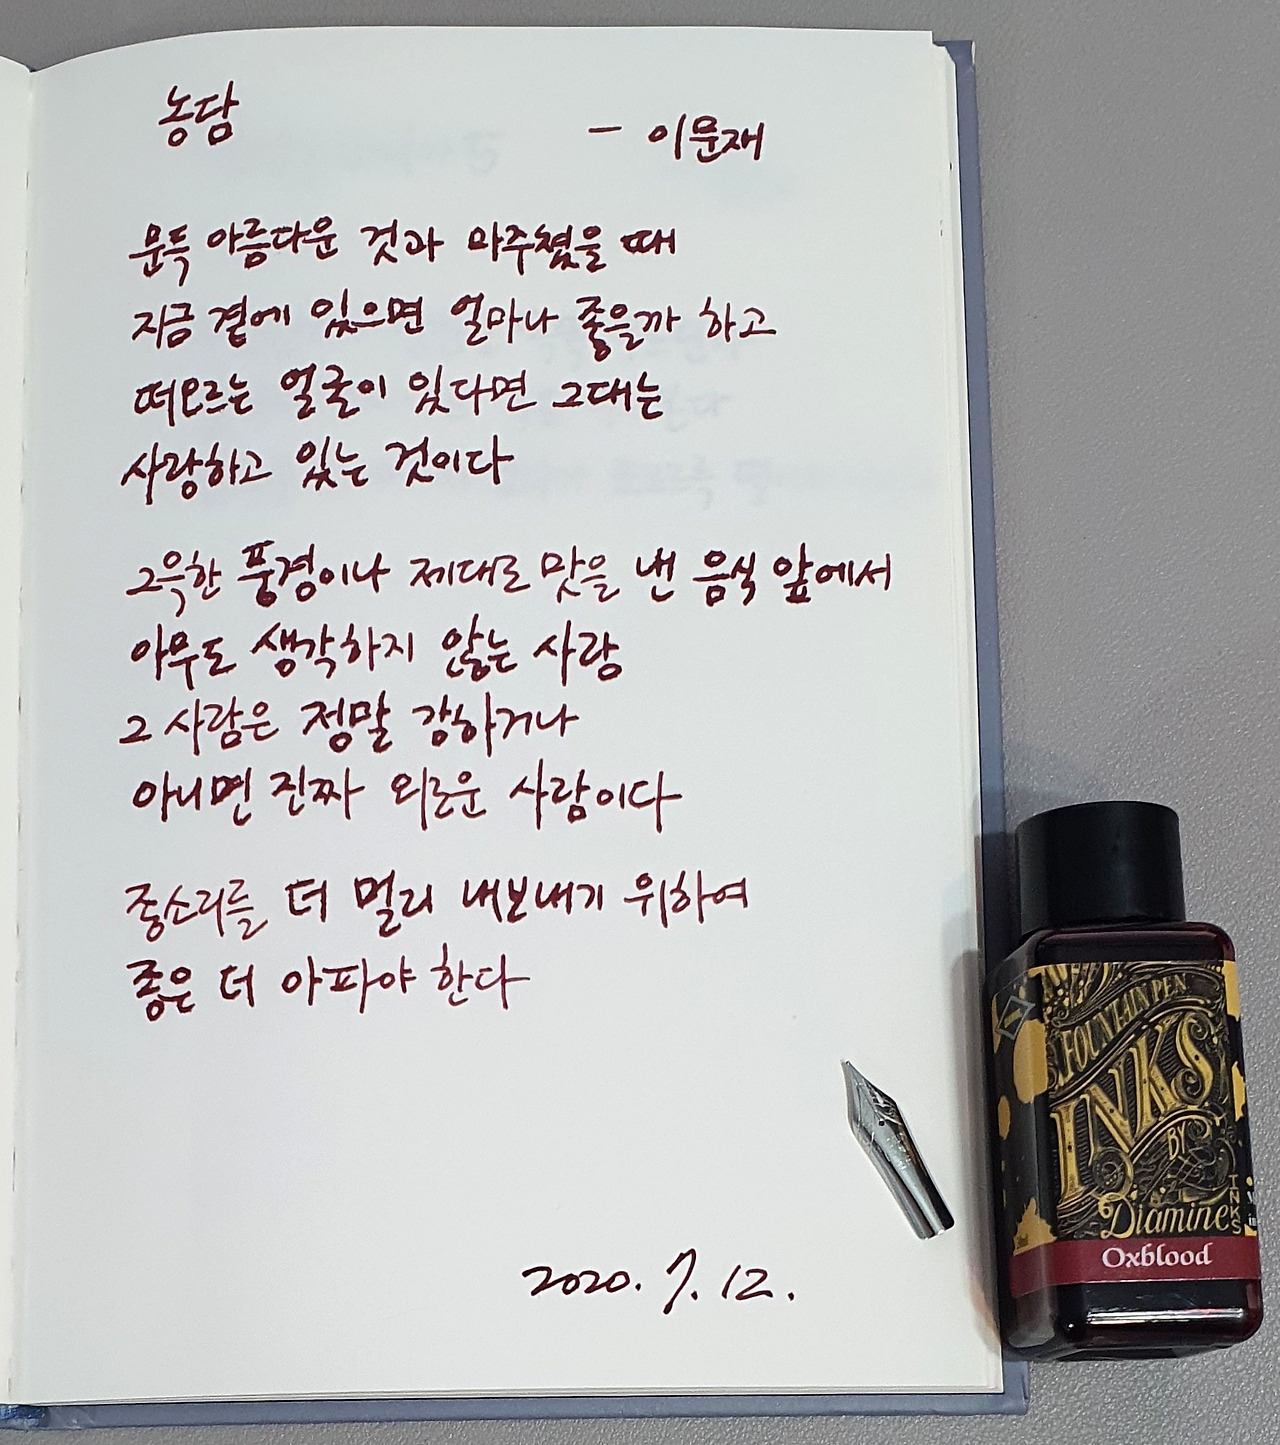 농담
- 이문재
문득 아름다운 것과 마주쳤을 때
지금 곁에 있으면 얼마나 좋을까 하고
떠오르는 얼굴이 있다면 그대는
사랑하고 있는 것이다
그윽한 풍경이나 제대로 맛을 낸 음식 앞에서
아무도 생각하지 않는 사람
그 사람은 정말 강하거나
아니면 진짜 외로운 사람이다
종소리를 더 멀리 내보내기 위하여
종은 더 아파야 한다
2020. 7. 12.
FOUNTAIN PEN
INKS
BY
Diamine
INKS
Oxblood